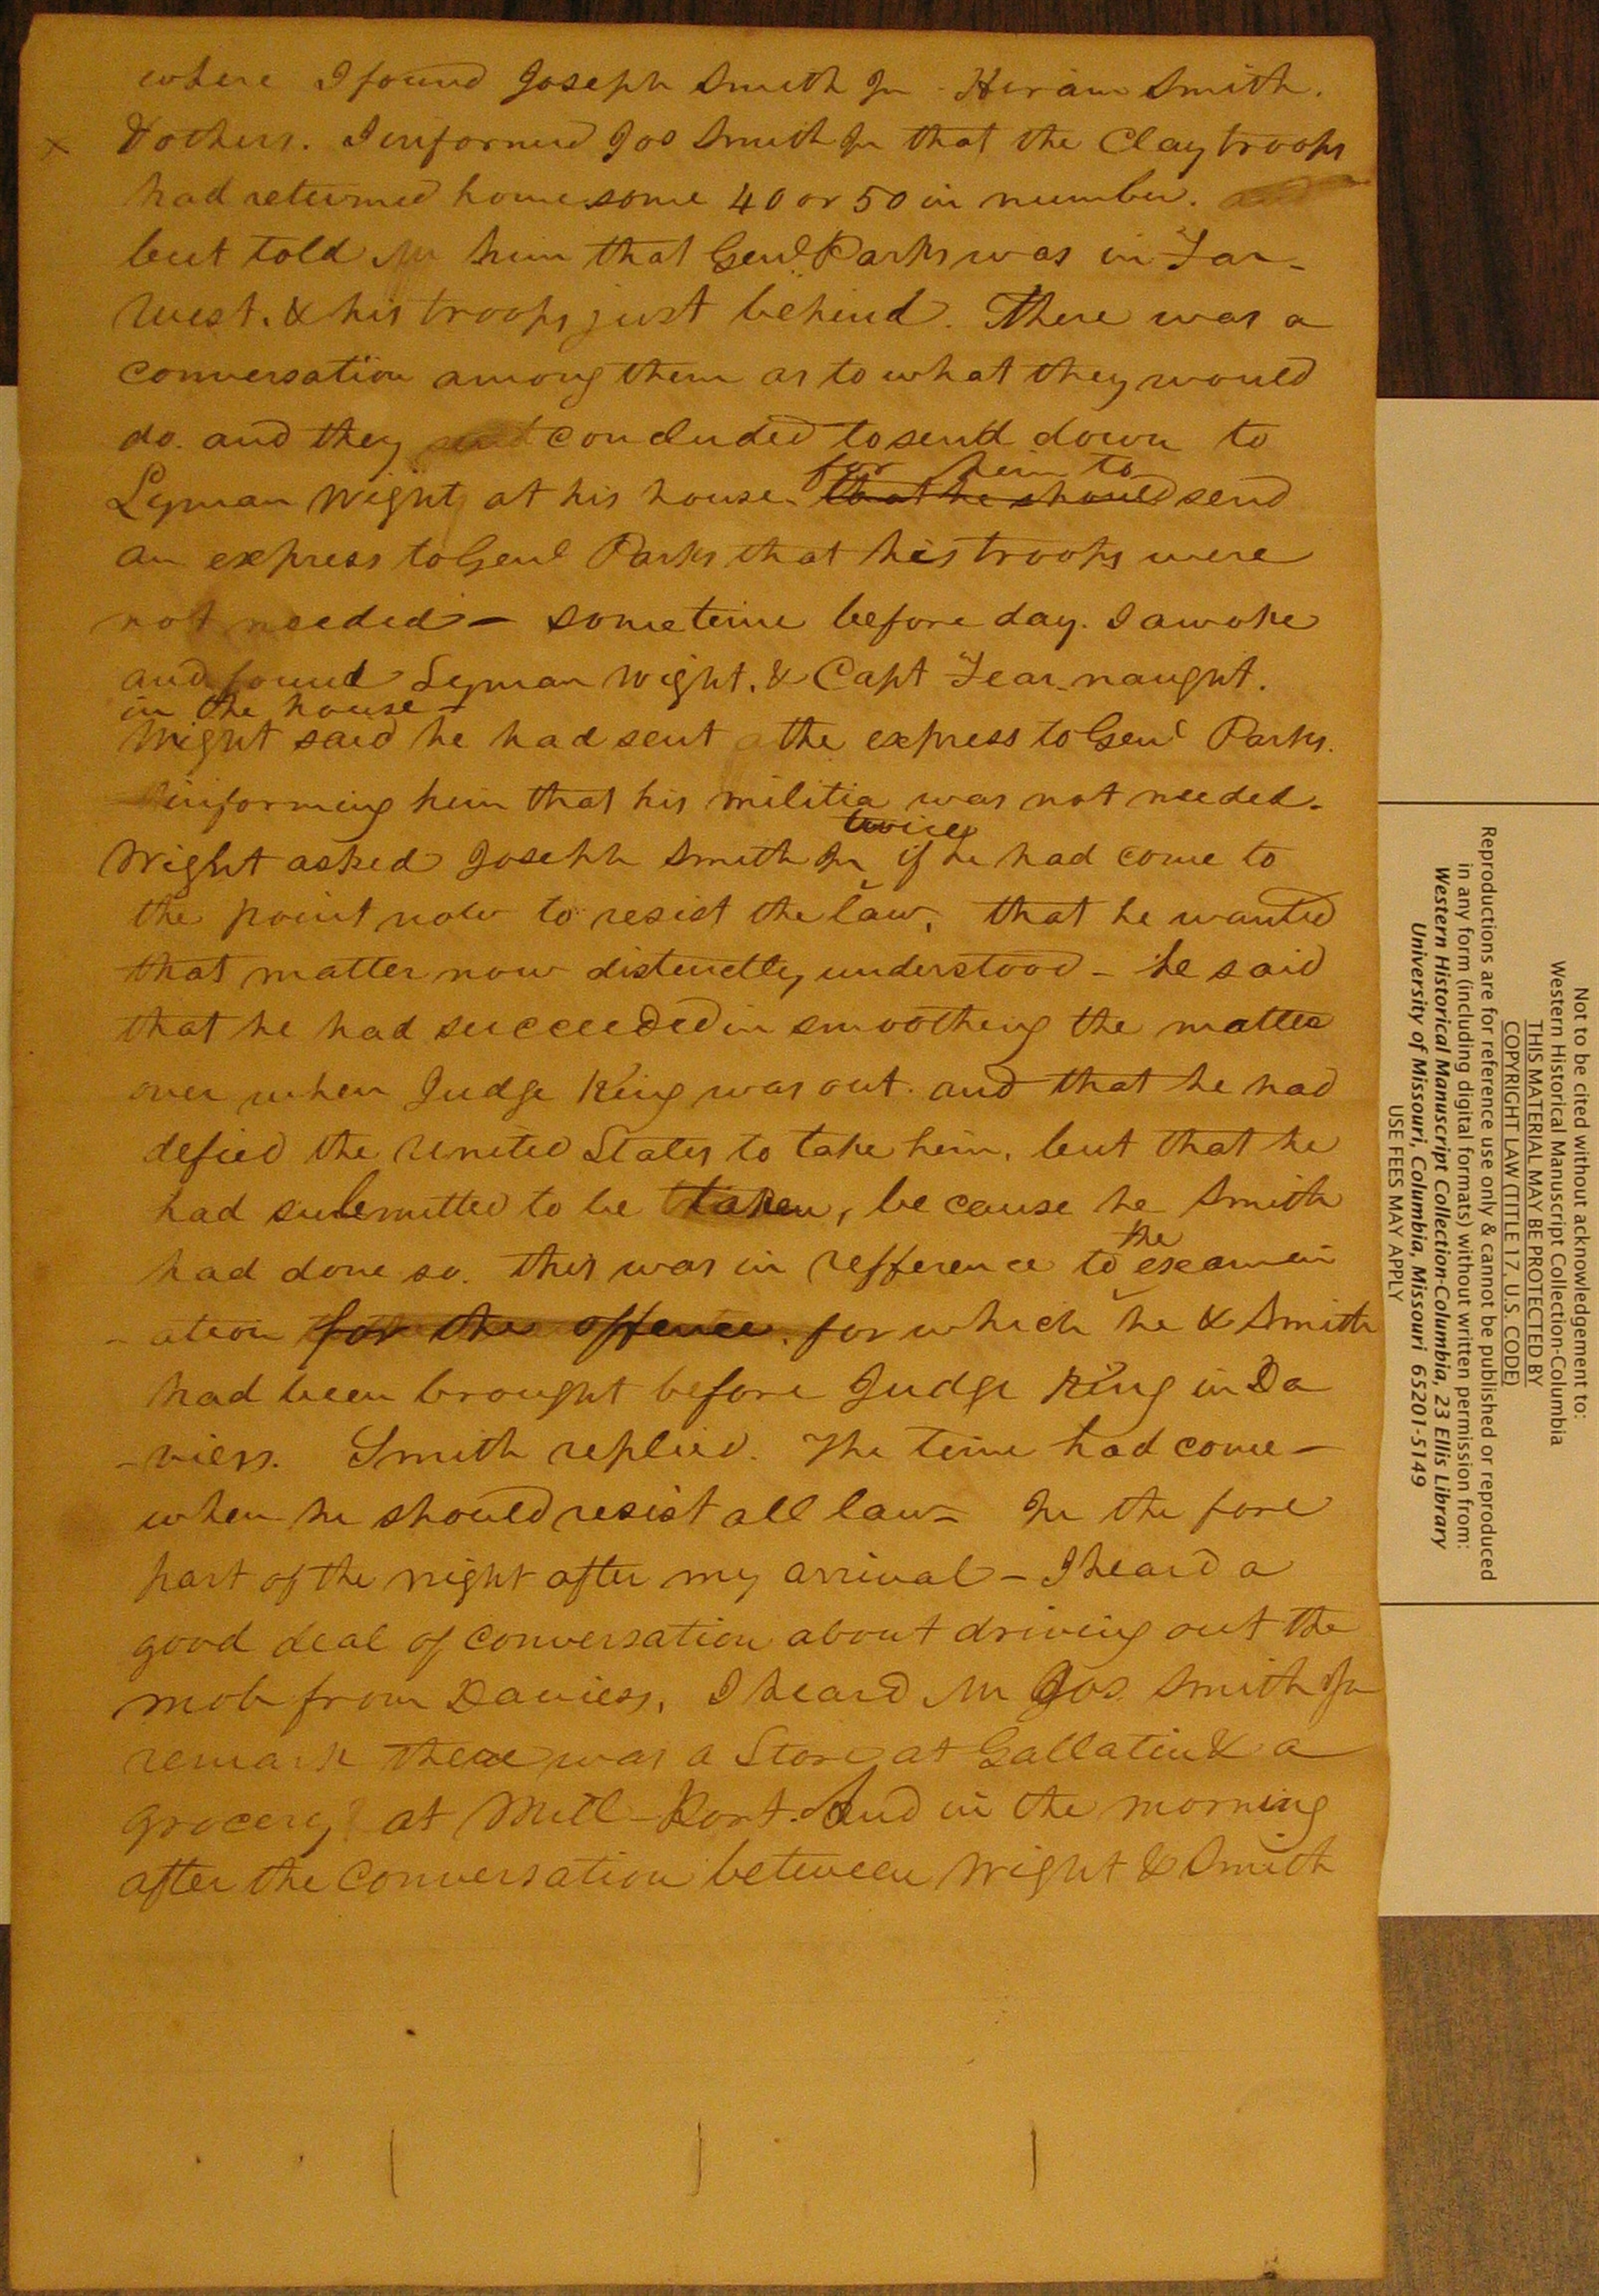 where I found Joseph Smith Jr - Hiram Smith.
x & others. I informed Jos Smith Jr that the Clay troops
had returned home some 40 or 50 in number.
but told Mr him that Genl Parks was in Far-
West. & his troops just behind. There was a
conversation among them as to what they would
do. and they concluded to send down to
for him to
Lyman Wight, at his house. that he should send
an express to Genl Parks that his troops were
not needed - sometime before day. I awoke
and found Lyman Wight. & Capt Fear-naught.
in the house -
Wight said he had sent the express to Genl Parks.
informing him that his militia was not needed.
twice
Wright asked Joseph Smith Jr if he had come to
the point now to resist the law, that he wanted
that matter now distinctly understood - he said
that he had succeeded in smoothing the matter
over when Judge King was out. and that he had
defied the United States to take him, but that he
had submitted to be taken, because he Smith
had done so. this was in refference to
the
examin
-ation for the offence. for which he & Smith
had been brought before Judge King in Da
-viess. Smith replied. The time had come -
when he should resist all law - In the fore
part of the night after my arrival - I heard a
good deal of conversation about driving out the
mob from Daviess, I heard Mr Jos Smith Jr
remark there was a Store at Gallatin & a
grocery at Mill-Port. And in the morning
after the conversation between Wright & Smith
Not to be cited without acknowledgement to:
Western Historical Manuscript Collection-Columbia
THIS MATERIAL MAY BE PROTECTED BY
COPYRIGHT LAW (TITLE 17, U.S. CODE)
Reproductions are for reference use only & cannot be published or reproduced
in any form (including digital formats) without written permission from:
Western Historical Manuscript Collection-Columbia, 23 Ellis Library
University of Missouri, Columbia, Missouri 65201-5149
USE FEES MAY APPLY